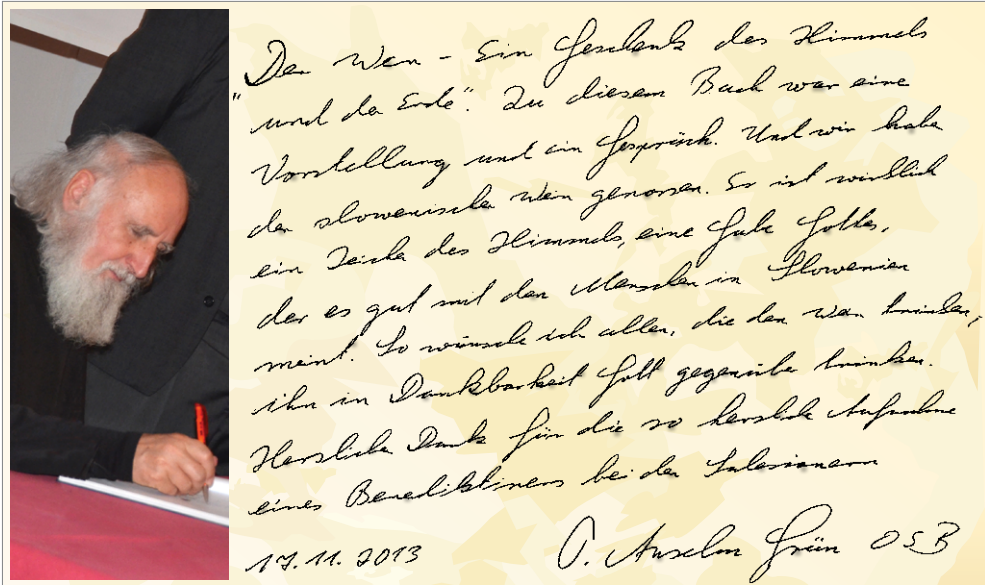 "Der Wein - Ein Geschenk des Himmels
und der Erde". Zu diesem Buch war eine
Vorstellung und ein Gespräch. Und wir haben
den slowenischen Wein genossen. Er ist wirklich
ein Zeichen des Himmels, eine Gabe Gottes,
der es gut mit den Menschen in Slowenien
meint. So wünsche ich allen, die den Wein trinken,
ihn in Dankbarkeit Gott gegenüber trinken.
Herzlichen Dank für die so herzliche Aufnahme
eines Benediktiners bei den Salesianern
17.11.2013 P. Anselm Grün OSB